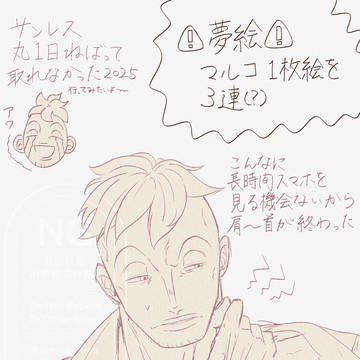 サンレス
丸1日ねばって
取れなかった2025
行ってみたいよ〜
アウー
夢絵
マルコ 1枚絵を
3連(?)
こんなに
長時間スマホを
見る機会ないから
肩〜首が終わった
NO